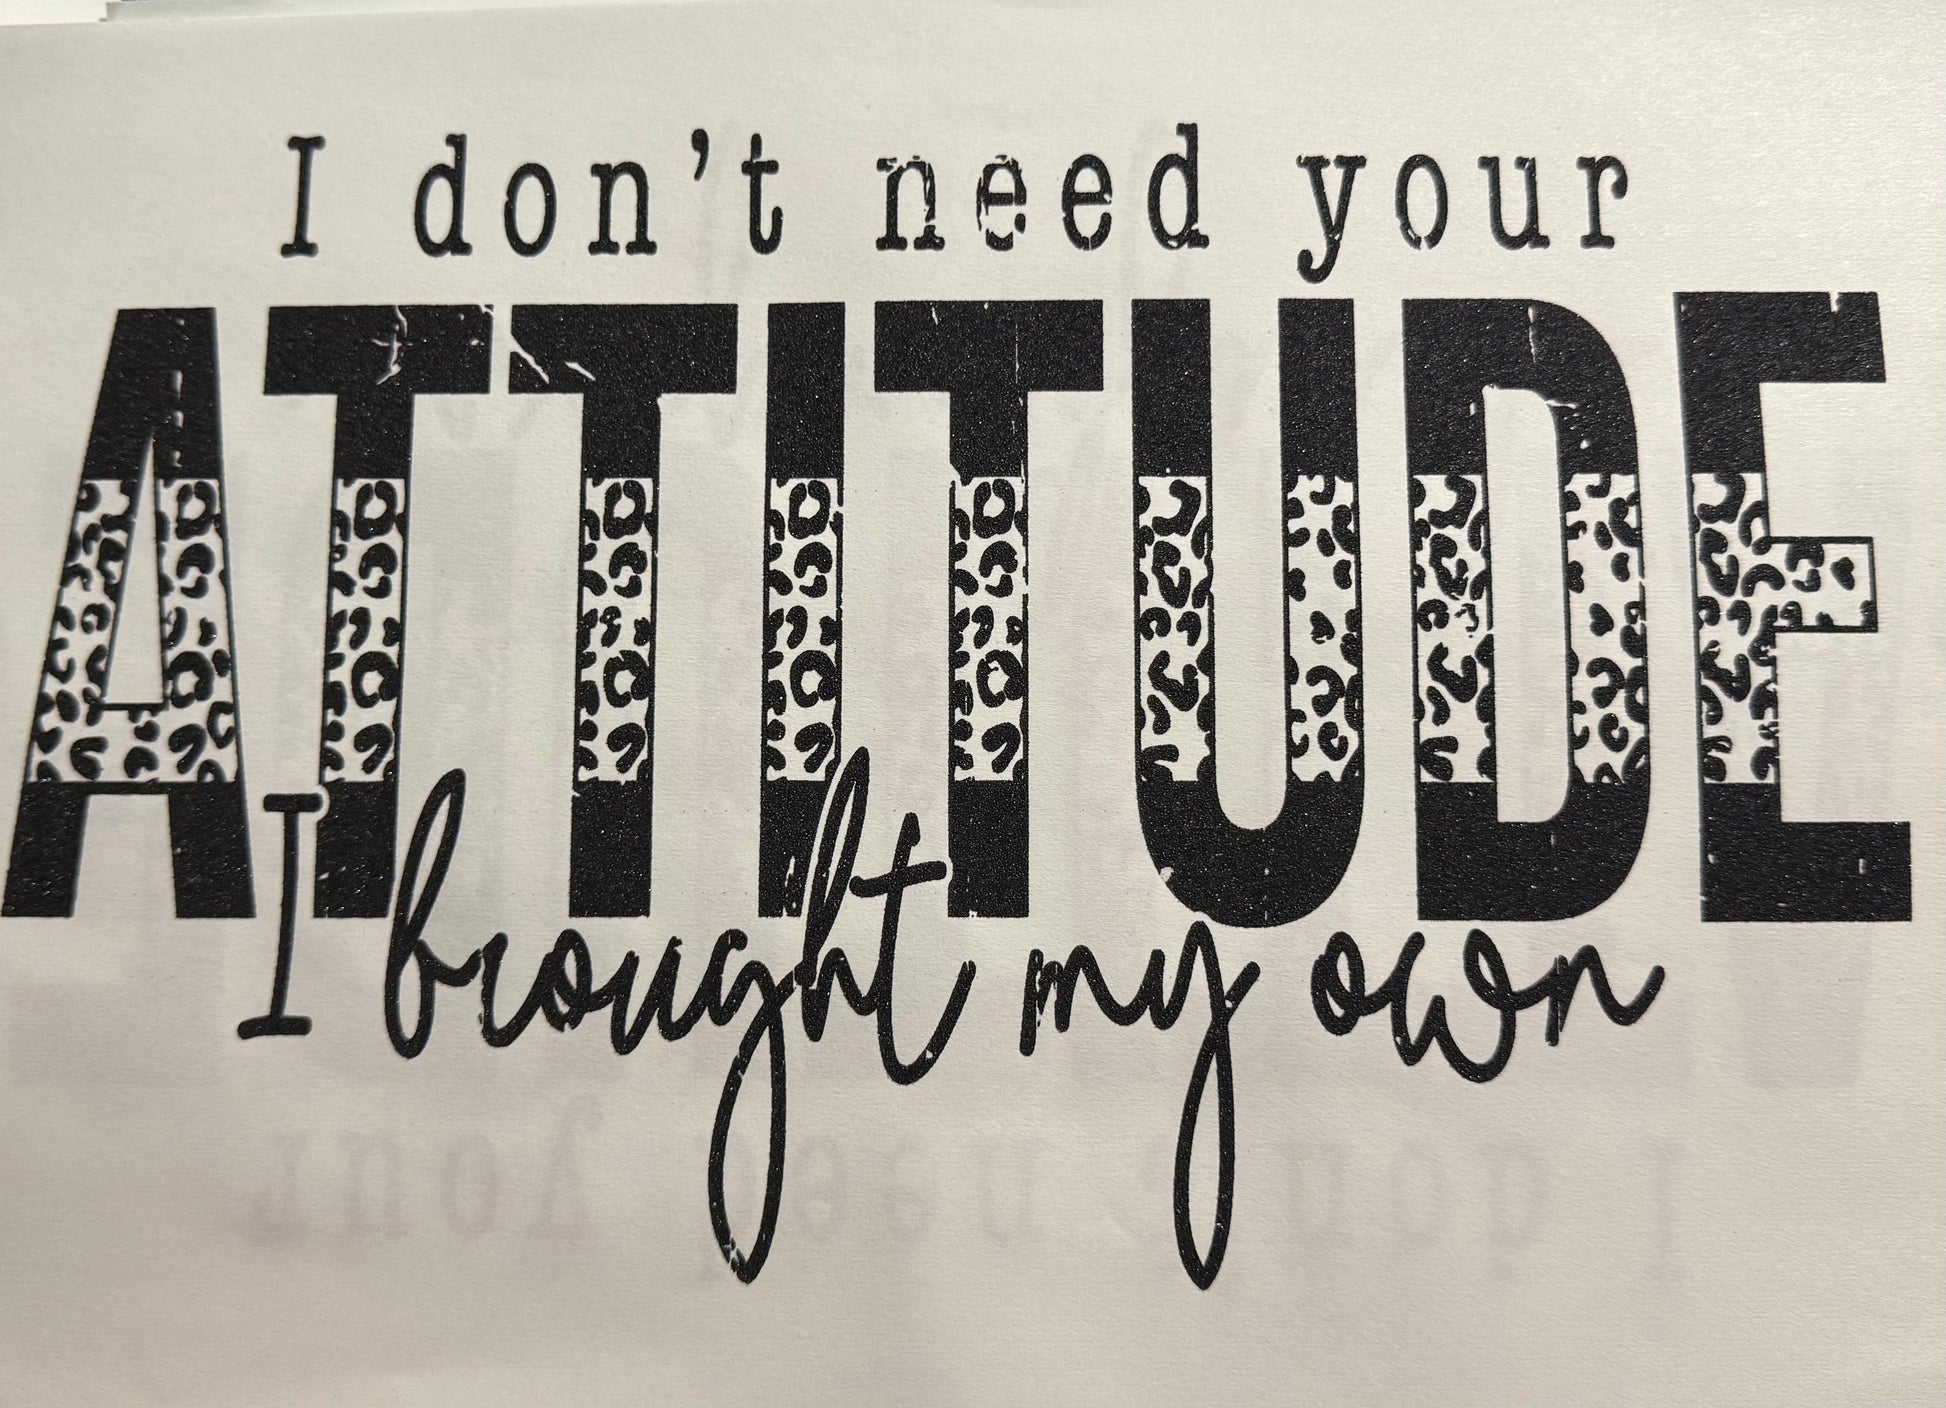 I don't need your
ATTITUDE
I brought my own